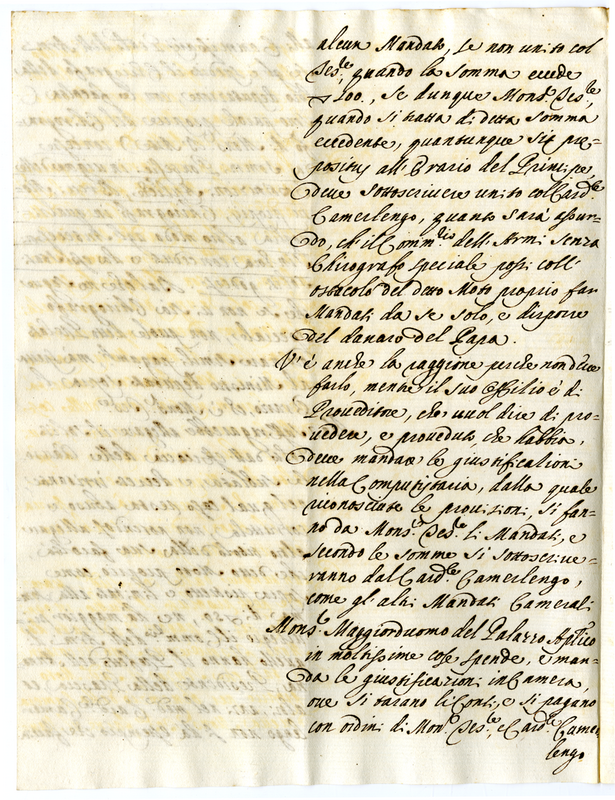 alcun Mandato, se non unito col
Tes.re, quando la somma eccede
200., se dunque Mons.r Tes.re,
quando si tratta di detta somma
eccedente, quantunque sia pre=
positus all'Erario del Principe,
deve sottoscrivere unito col Card.le
Camerlengo, quanto sarà assur=
do, ch'il Comm.rio dell'Armi senza
Chirografo speciale possi coll'
ostacolo del detto Moto proprio far
Mandati da se solo, e disporre
del danaro del Papa.
V'è anche la raggione perche non deve
farlo, mentre il suo Offitio è di
Proveditore, che vuol dire di pro=
vedere, e proveduto, che habbia,
deve mandare le giustificationi
nella Computistaria, dalla quale
riconosciute le provisioni, si fan=
no da Mons.r Tes.re li Mandati, e
secondo le somme si sottoscrive=
ranno dal Card.le Camerlengo,
come gl'altri Mandati Camerali
Mons.r Maggiorduomo del Palazzo Aplico
in moltissime cose spende, e man=
da le giustificationi in Camera,
ove si tarano li Conti, e si pagano
con ordini di Mons.r Tes.re, e Card.le Camer
lengo